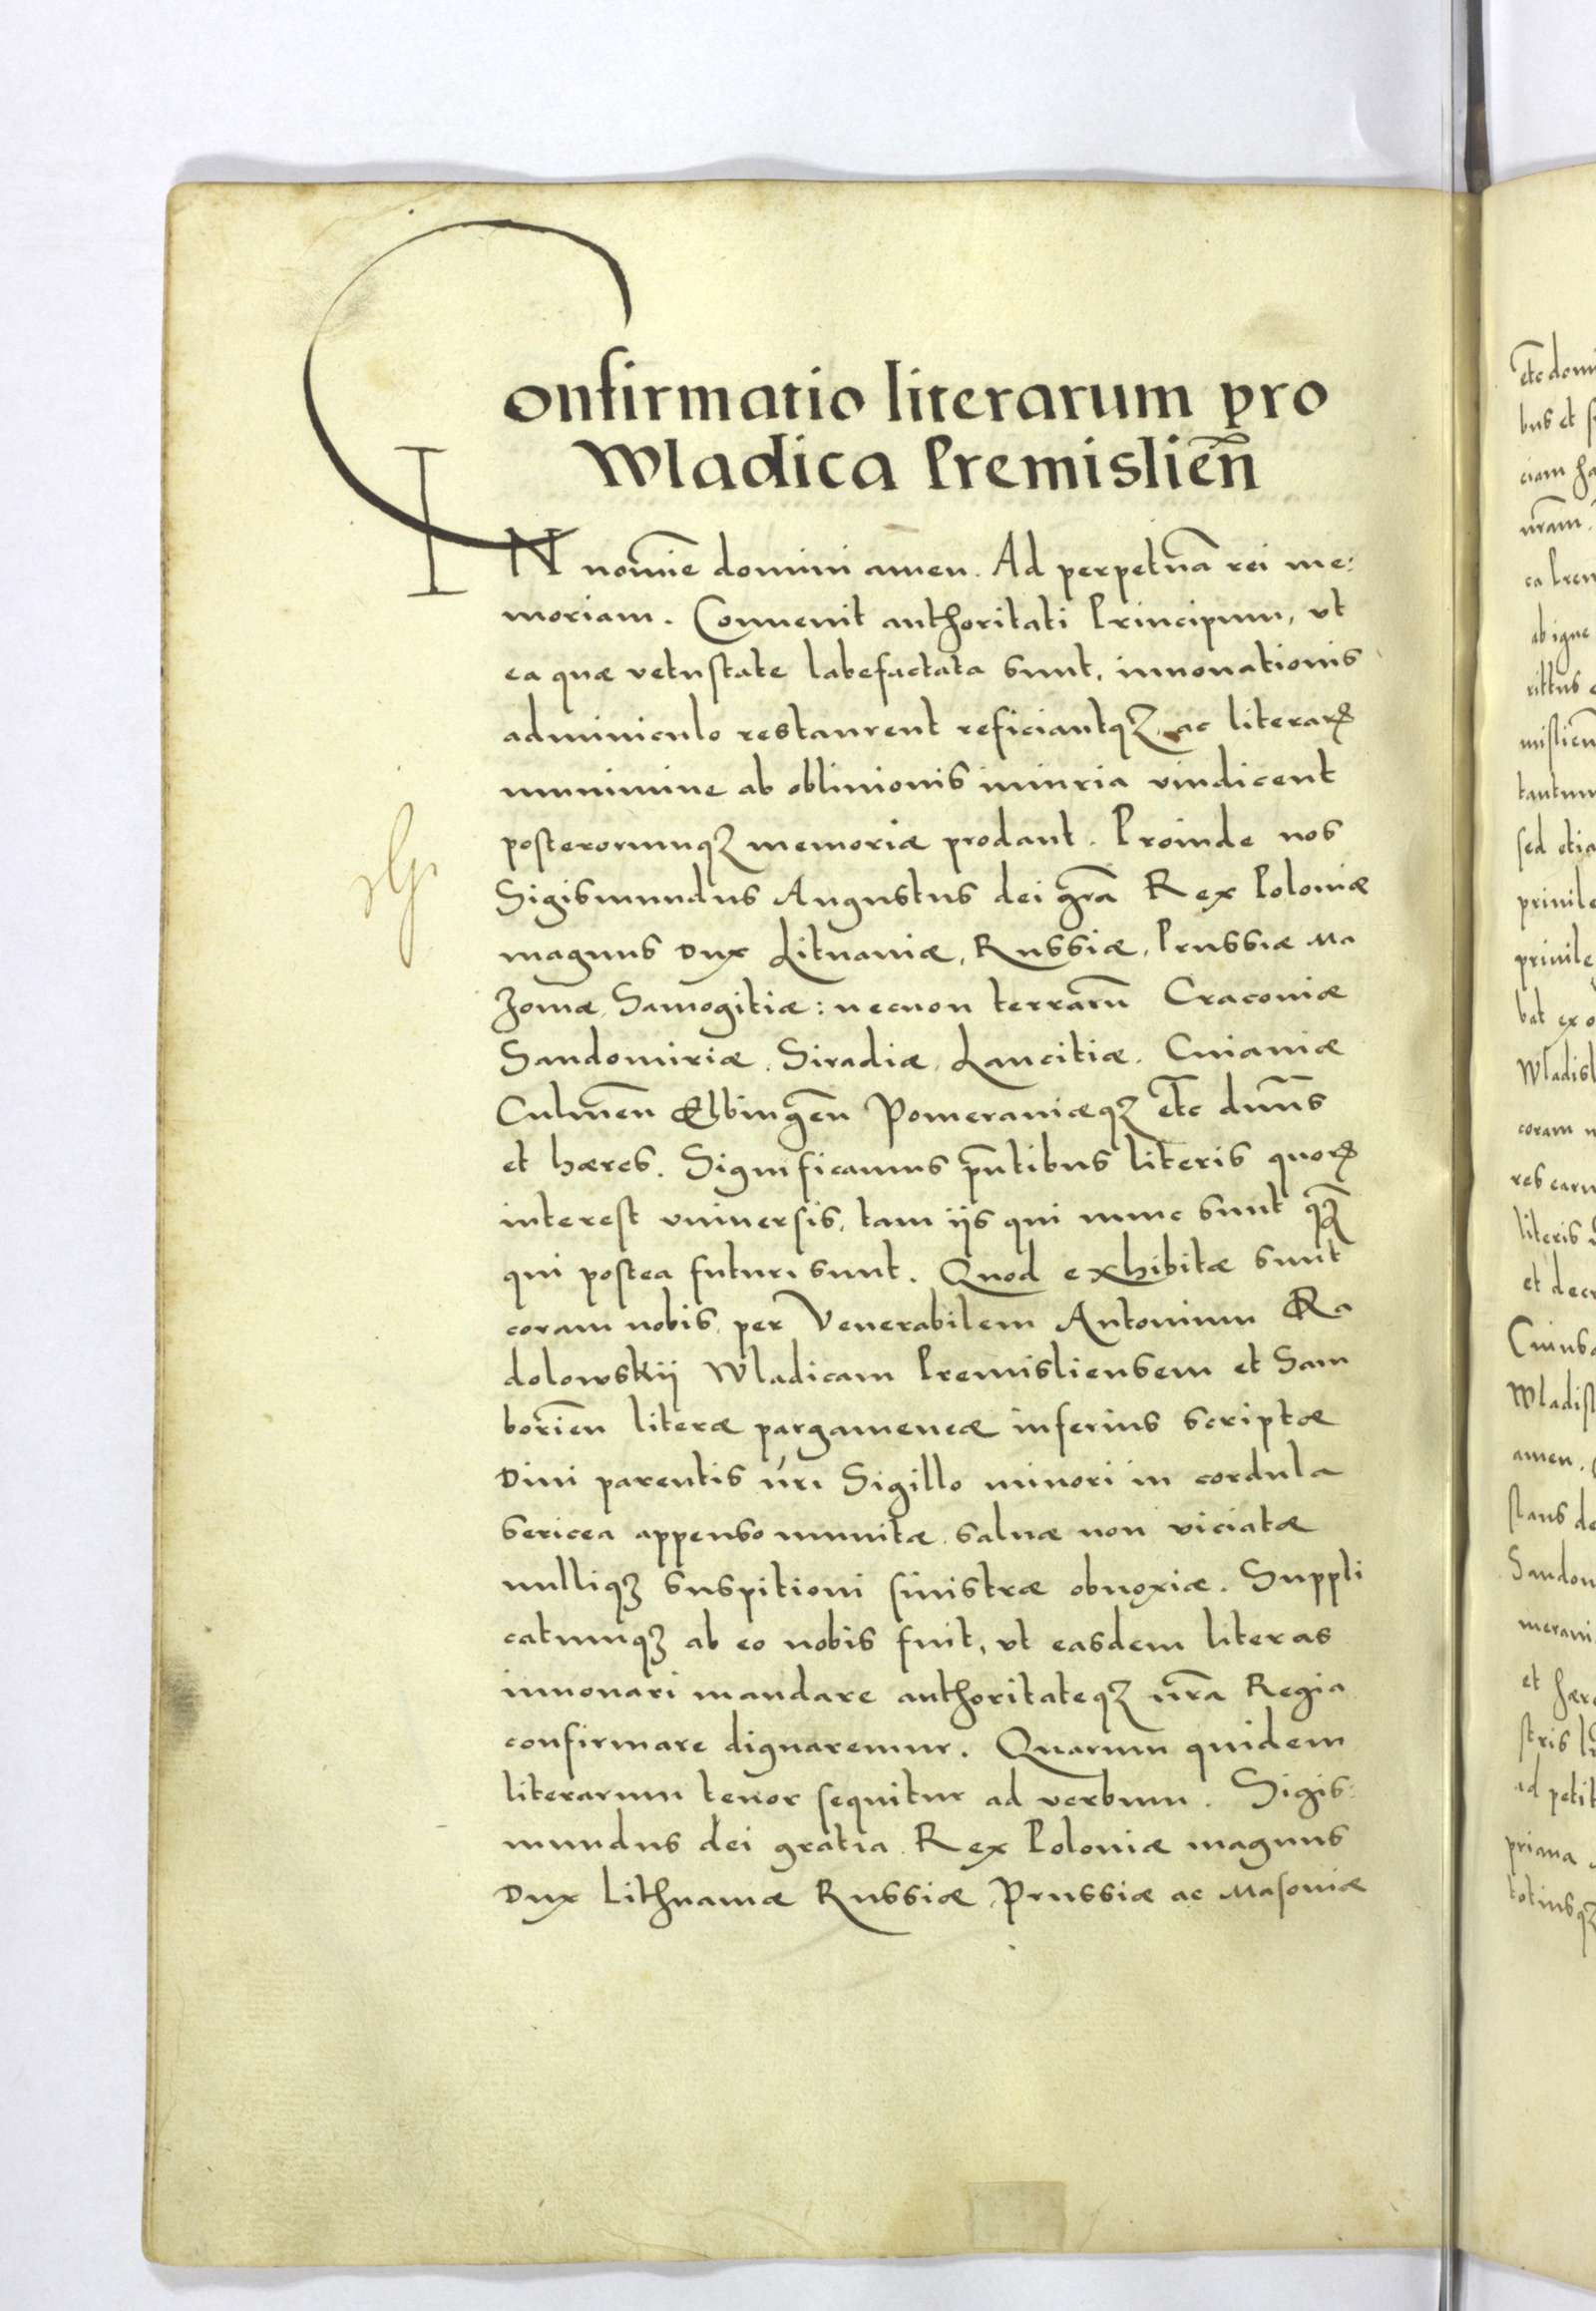 Confirmatio literarum pro
Wladica Premislien̄
IN nomi͞e domini amen. Ad perpetuā rei me:
moriam. Conuenit authoritati Principum, vt
ea quæ vetustate labefactata sunt, innouationis
adminiculo restaurent reficiantqꝫ, ac literarꝝ
munimine ab obliuionis iniuria vindicent
posterorumqꝫ memoriæ prodant. Proinde nos
Sigismundus Augustus dei gr̄a Rex Poloniæ
magnus Dux Lituaniæ, Russiæ, Prussiæ Ma
zouiæ, Samogitiæ: necnon terrarū Cracouiæ
Sandomiriæ, Siradiæ, Lancitiæ, Cuiauiæ
Culmēn Elbingēn Pomeraniæqꝫ et͞c dnūs
et hæres. Significamus pn̄tibus literis quorꝝ
interest vniuersis, tam ijs qui nunc sunt qꝫ̄
qui postea futuri sunt. Quod exhibitæ sunt
coram nobis, per Venerabilem Antonium Ra
dolowskij Wladicam Premisliensem et Sam
boriēn literæ pargameneæ inferius scriptæ
Diui parentis nr̄i Sigillo minori in cordula
sericea appenso munitæ, saluæ non viciatæ
nulliqꝫ suspitioni sinistræ obnoxiæ. Suppli
catumqꝫ ab eo nobis fuit, vt easdem literas
innouari mandare authoritateqꝫ nr̄a Regia
confirmare dignaremur. Quarum quidem
literarum tenor sequitur ad verbum. Sigis:
mundus dei gratia Rex Poloniæ magnus
Dux Lithuaniæ Russiæ, Prussiæ ac Masouiæ